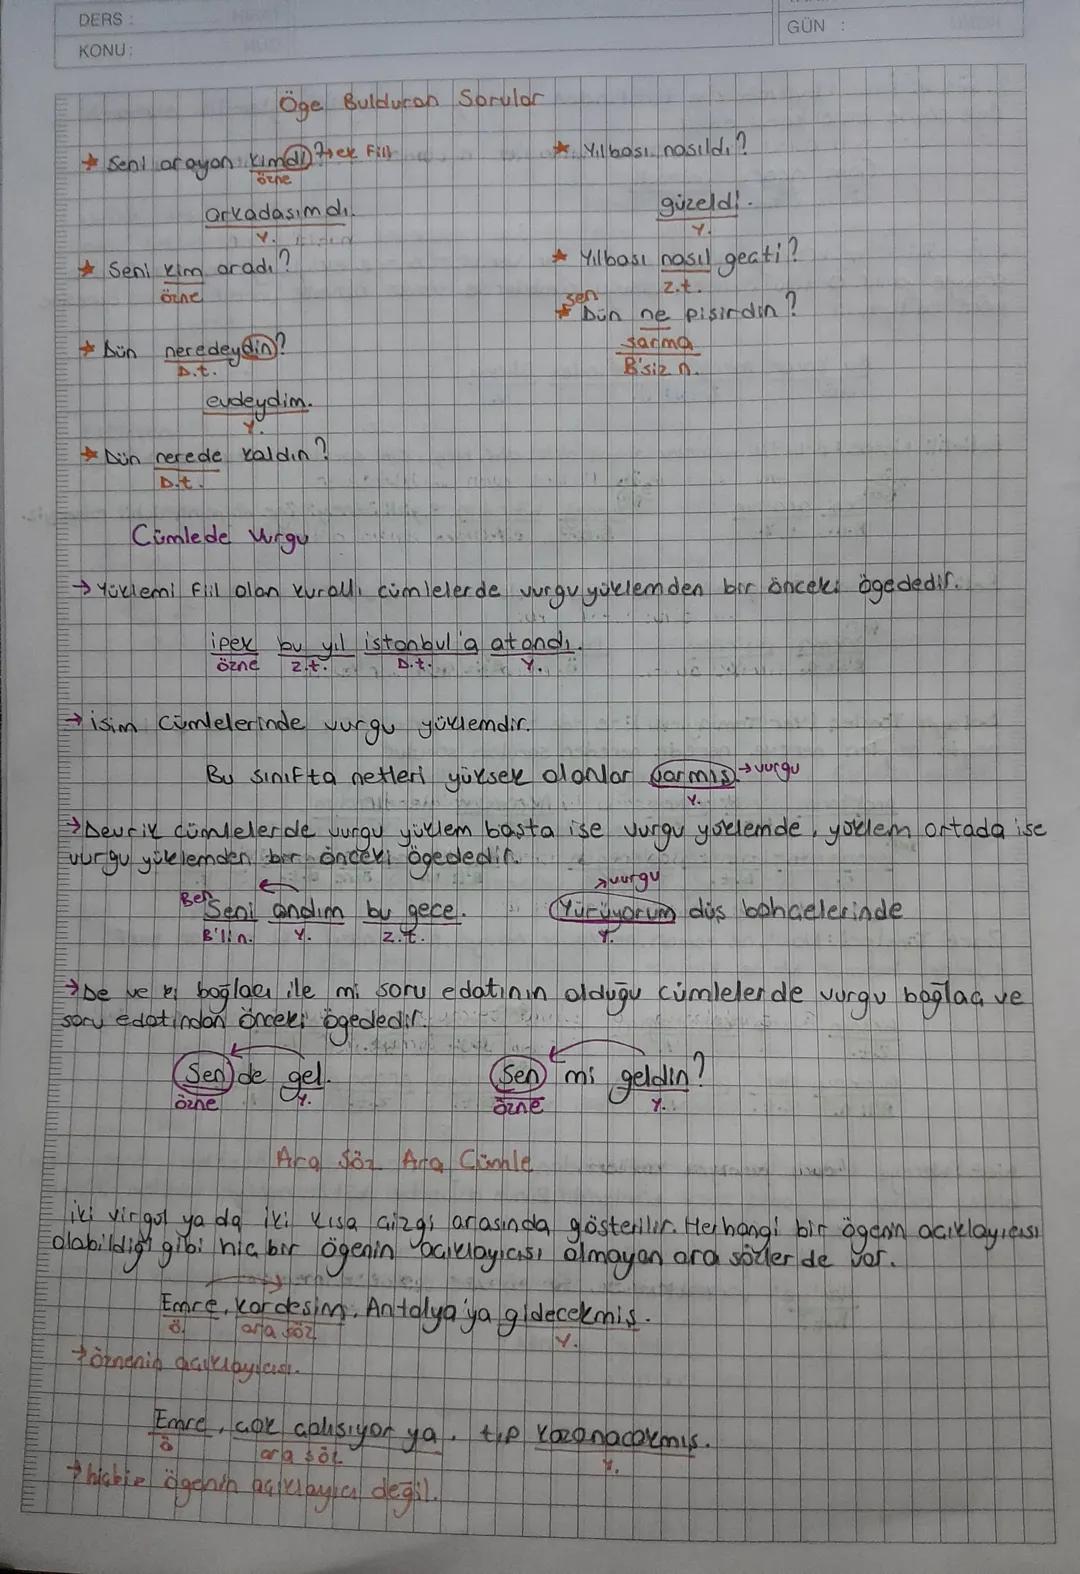 DERS :
KONU:
GÜN :
Öge Bulduran Sorular
★ Seni arayan kimdi? → ek fiil
özne
arkadaşımdı.
Y.
★ Seni kim aradı?
özne
★ Dün neredeydin?
D.t.
evdeydim.
Y.
★ Dün nerede kaldın?
D.t.
★ Yılbaşı nasıldı?
güzeldi.
Y.
★ Yılbaşı nasıl geçti?
z.t.
sen
★ Dün ne pişirdin?
sarma
B'siz n.
Cümlede Vurgu
→ Yüklemi fiil olan kurallı cümlelerde vurgu yüklemden bir önceki ögededir.
ipek bu yıl istanbul'a atandı.
özne z.t. D.t. Y.
→ isim cümlelerinde vurgu yüklemdir.
Bu sınıfta netleri yüksek olanlar varmış. → vurgu
Y.
→ Devrik cümlelerde vurgu yüklem başta ise vurgu yüklemde, yüklem ortada ise
vurgu yüklemden bir önceki ögededir.
Ben Seni andım bu gece.
B'li n. Y. z.t.
→ vurgu
Yürüyorum düş bahçelerinde
Y.
→ De ve ki bağlacı ile mi soru edatının olduğu cümlelerde vurgu bağlaç ve
soru edatından önceki ögededir.
Sen de gel.
özne Y.
Sen mi geldin?
özne Y.
Ara Söz Ara Cümle
iki virgül ya da iki kısa çizgi arasında gösterilir. Herhangi bir ögenin açıklayıcısı
olabildiği gibi hiç bir ögenin açıklayıcısı olmayan ara sözler de var.
Emre, kardeşim, Antalya'ya gidecekmiş.
ö. ara söz Y.
→ öznenin açıklayıcısı.
Emre, çok çalışıyor ya, tıp kazanacakmış.
ö ara söz Y.
→ hiçbir ögenin açıklayıcı değil.